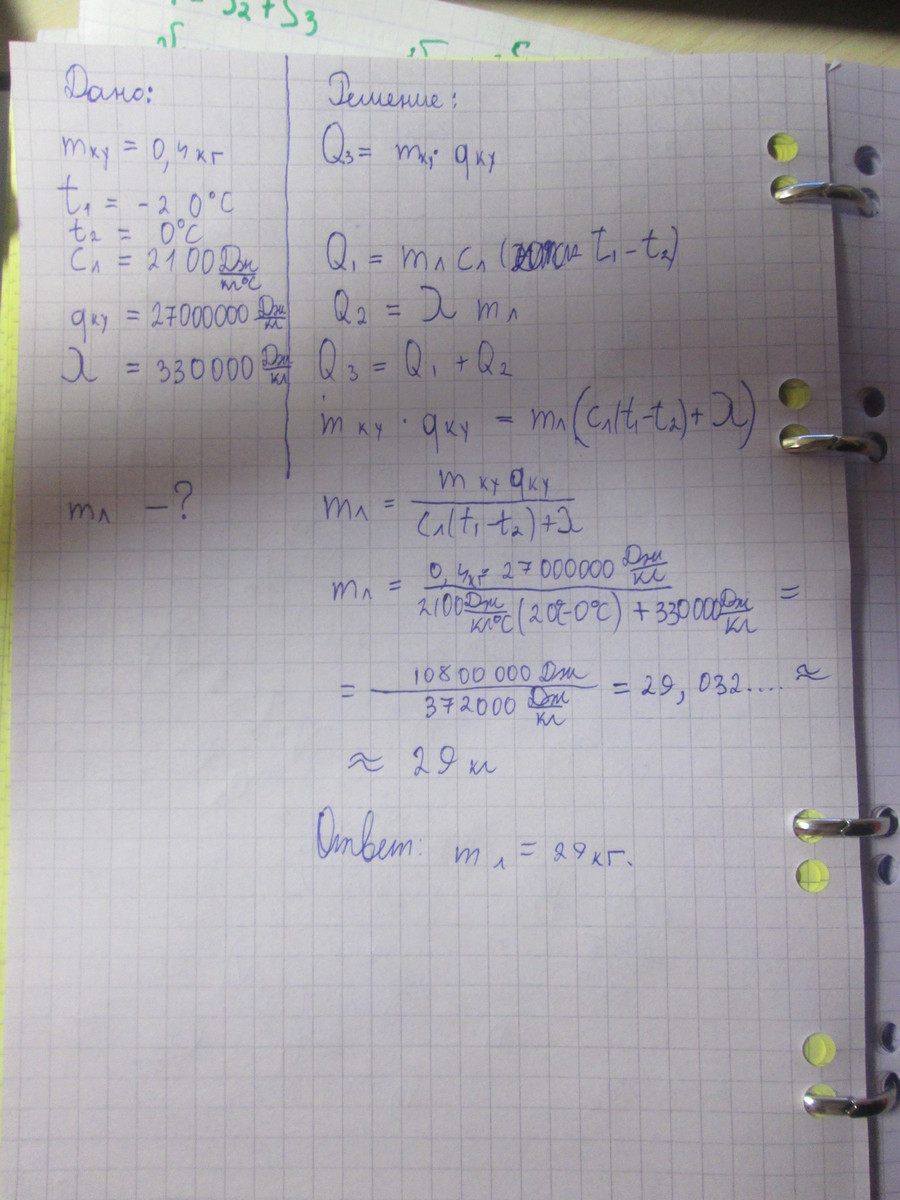 S₂ + S₃
Дано:
m ку = 0,4 кг
t₁ = -20°C
t₂ = 0°C
Cл = 2100 Дж/кг°C
qку = 27000000 Дж/кг
λ = 330000 Дж/кг
mл - ?
Решение:
Q₃ = mку · qку
Q₁ = mл cл ( t₁ - t₂)
Q₂ = λ mл
Q₃ = Q₁ + Q₂
m ку · qку = mл(cл(t₁-t₂)+λ)
mл = m ку qку / cл(t₁-t₂)+λ
mл = 0,4кг · 27000000 Дж/кг / 2100 Дж/кг°C (20°C-0°C) + 330000 Дж/кг =
= 10800000 Дж / 372000 Дж/кг = 29,032.... ≈
≈ 29 кг
Ответ: m л = 29 кг.